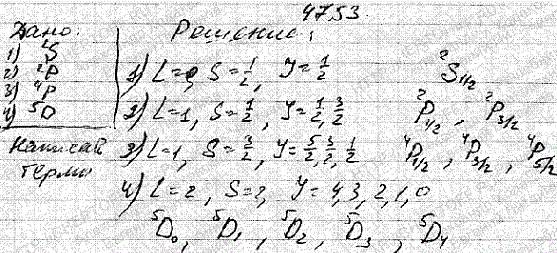 4753.
Дано: Решение:
1) ²S
2) ²P
3) ⁴P
4) ⁵D
Написать термы
1) L=0, S=1/2, J=1/2 ²S₁/₂
2) L=1, S=1/2, J=1/2, 3/2 ²P₁/₂, ²P₃/₂
3) L=1, S=3/2, J=5/2, 3/2, 1/2 ⁴P₁/₂, ⁴P₃/₂, ⁴P₅/₂
4) L=2, S=2, J=4,3,2,1,0
⁵D₀, ⁵D₁, ⁵D₂, ⁵D₃, ⁵D₄